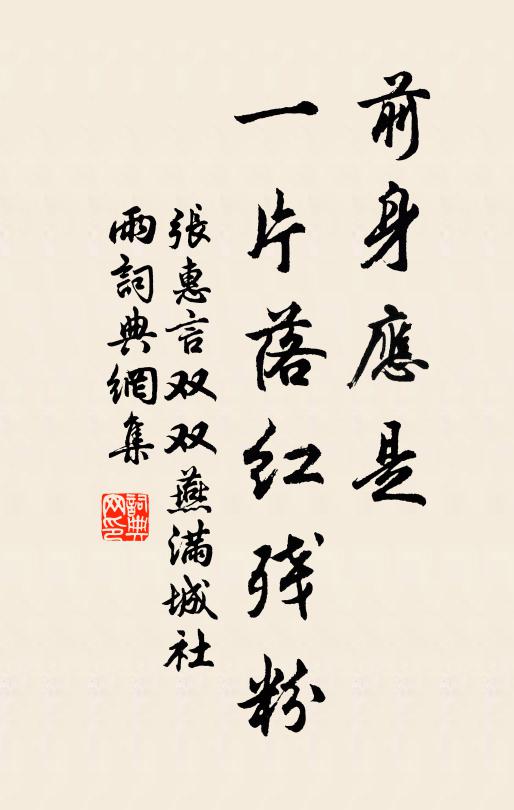 前身應是
一片落红残粉
張惠言双双燕满城社
雨詞典網集
詞典网印